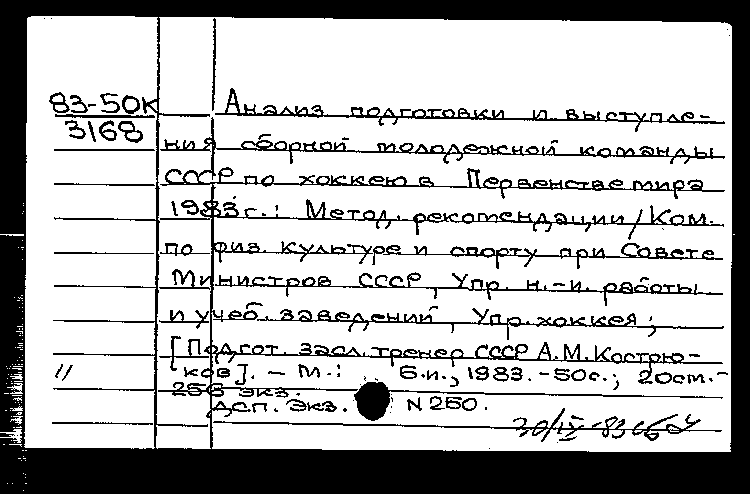 83-50К
3168
Анализ подготовки и выступле-
ния сборной молодежной команды
СССР по хоккею в Первенстве мира
1983 г.: Метод. рекомендации/Ком.
по физ. культуре и спорту при Совете
Министров СССР, Упр. н.-и. работы
и учеб. заведений, Упр. хоккея;
[Подгот. засл. тренер СССР А.М. Костр​ю-
ков]. - М.: Б.и., 1983. - 50с.; 20см. -
256 экз.
ДСП. Экз. N 250.
30/IX-83